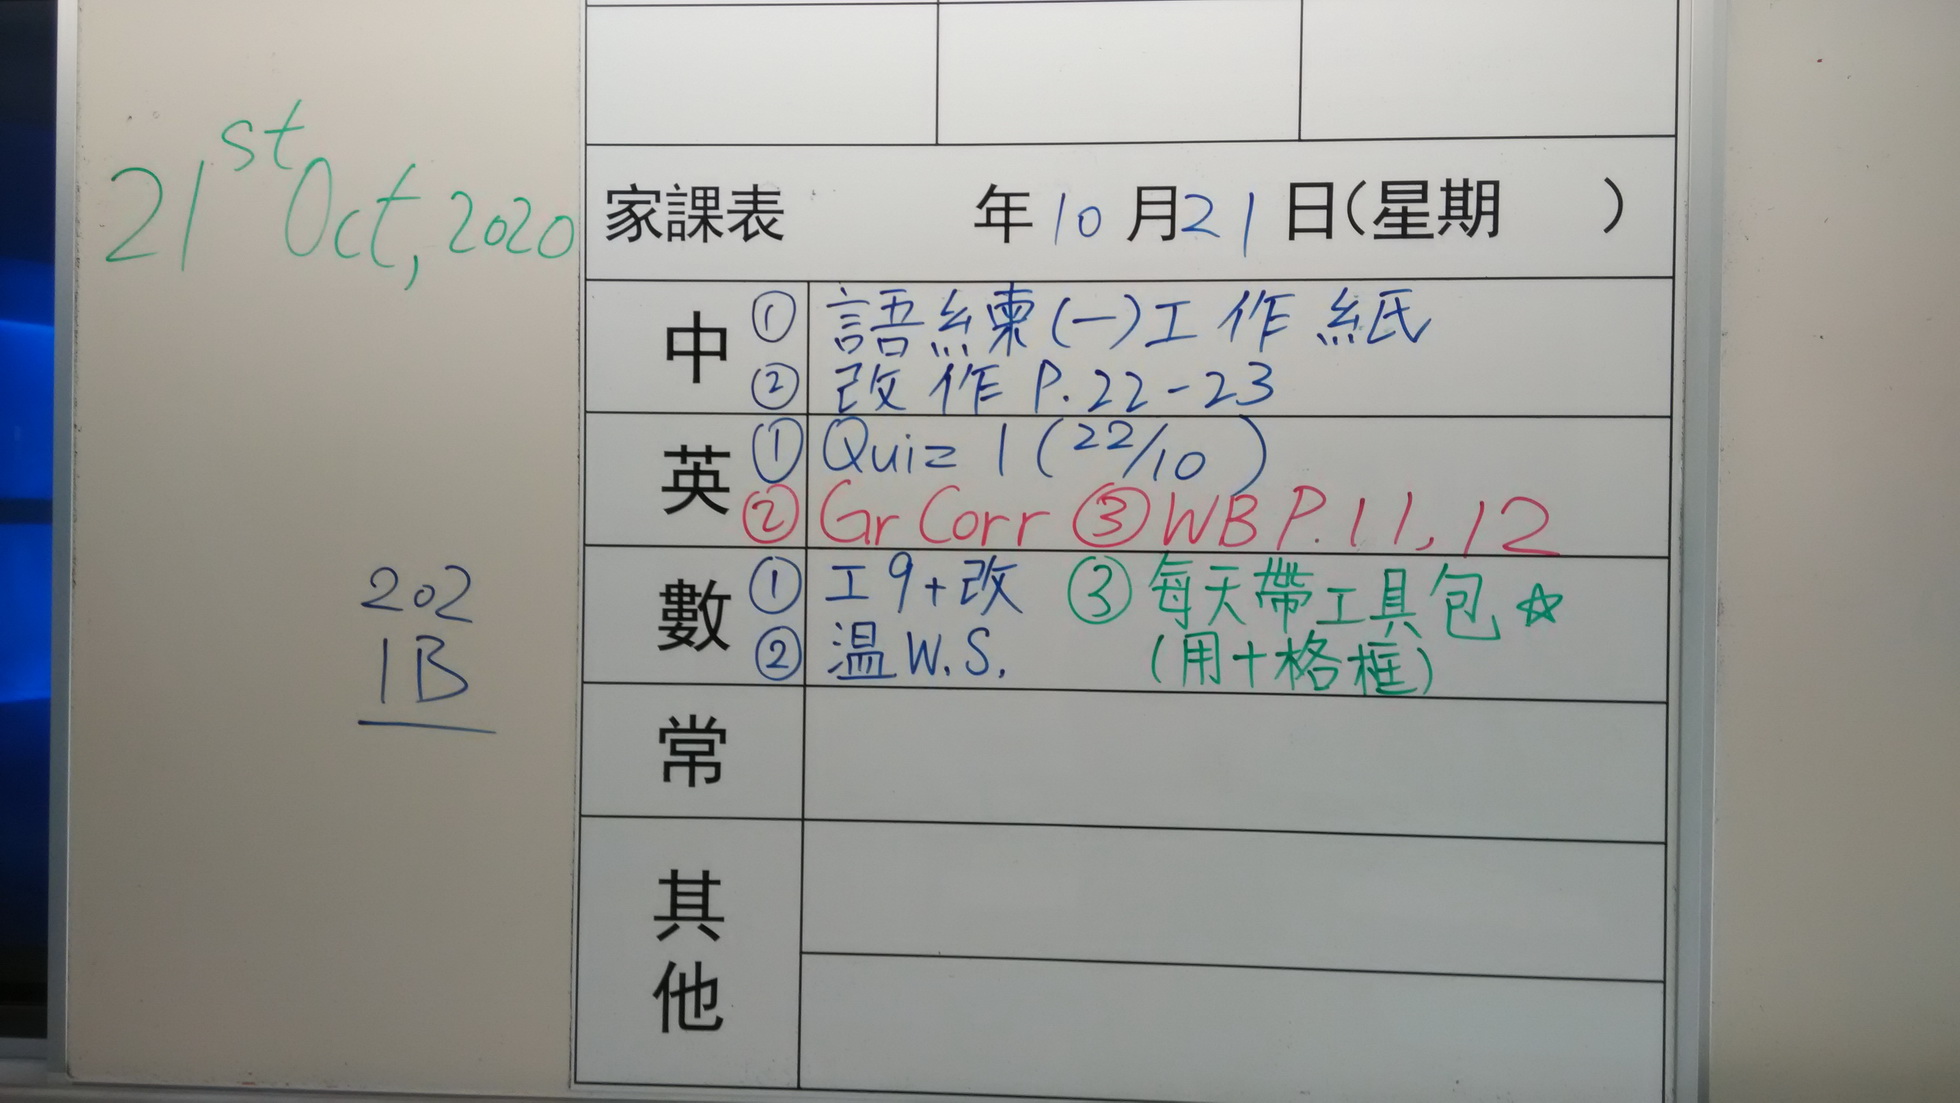 21st Oct, 2020
202
1B
家課表 年10月21日(星期 )
中 ① 語練(一)工作紙
② 改作 P.22-23
英 ① Quiz 1 (22/10)
② Gr Corr ③ WB P.11, 12
數 ① 工9+改 ③ 每天帶工具包☆
② 溫 W.S. (用十格框)
常
其他